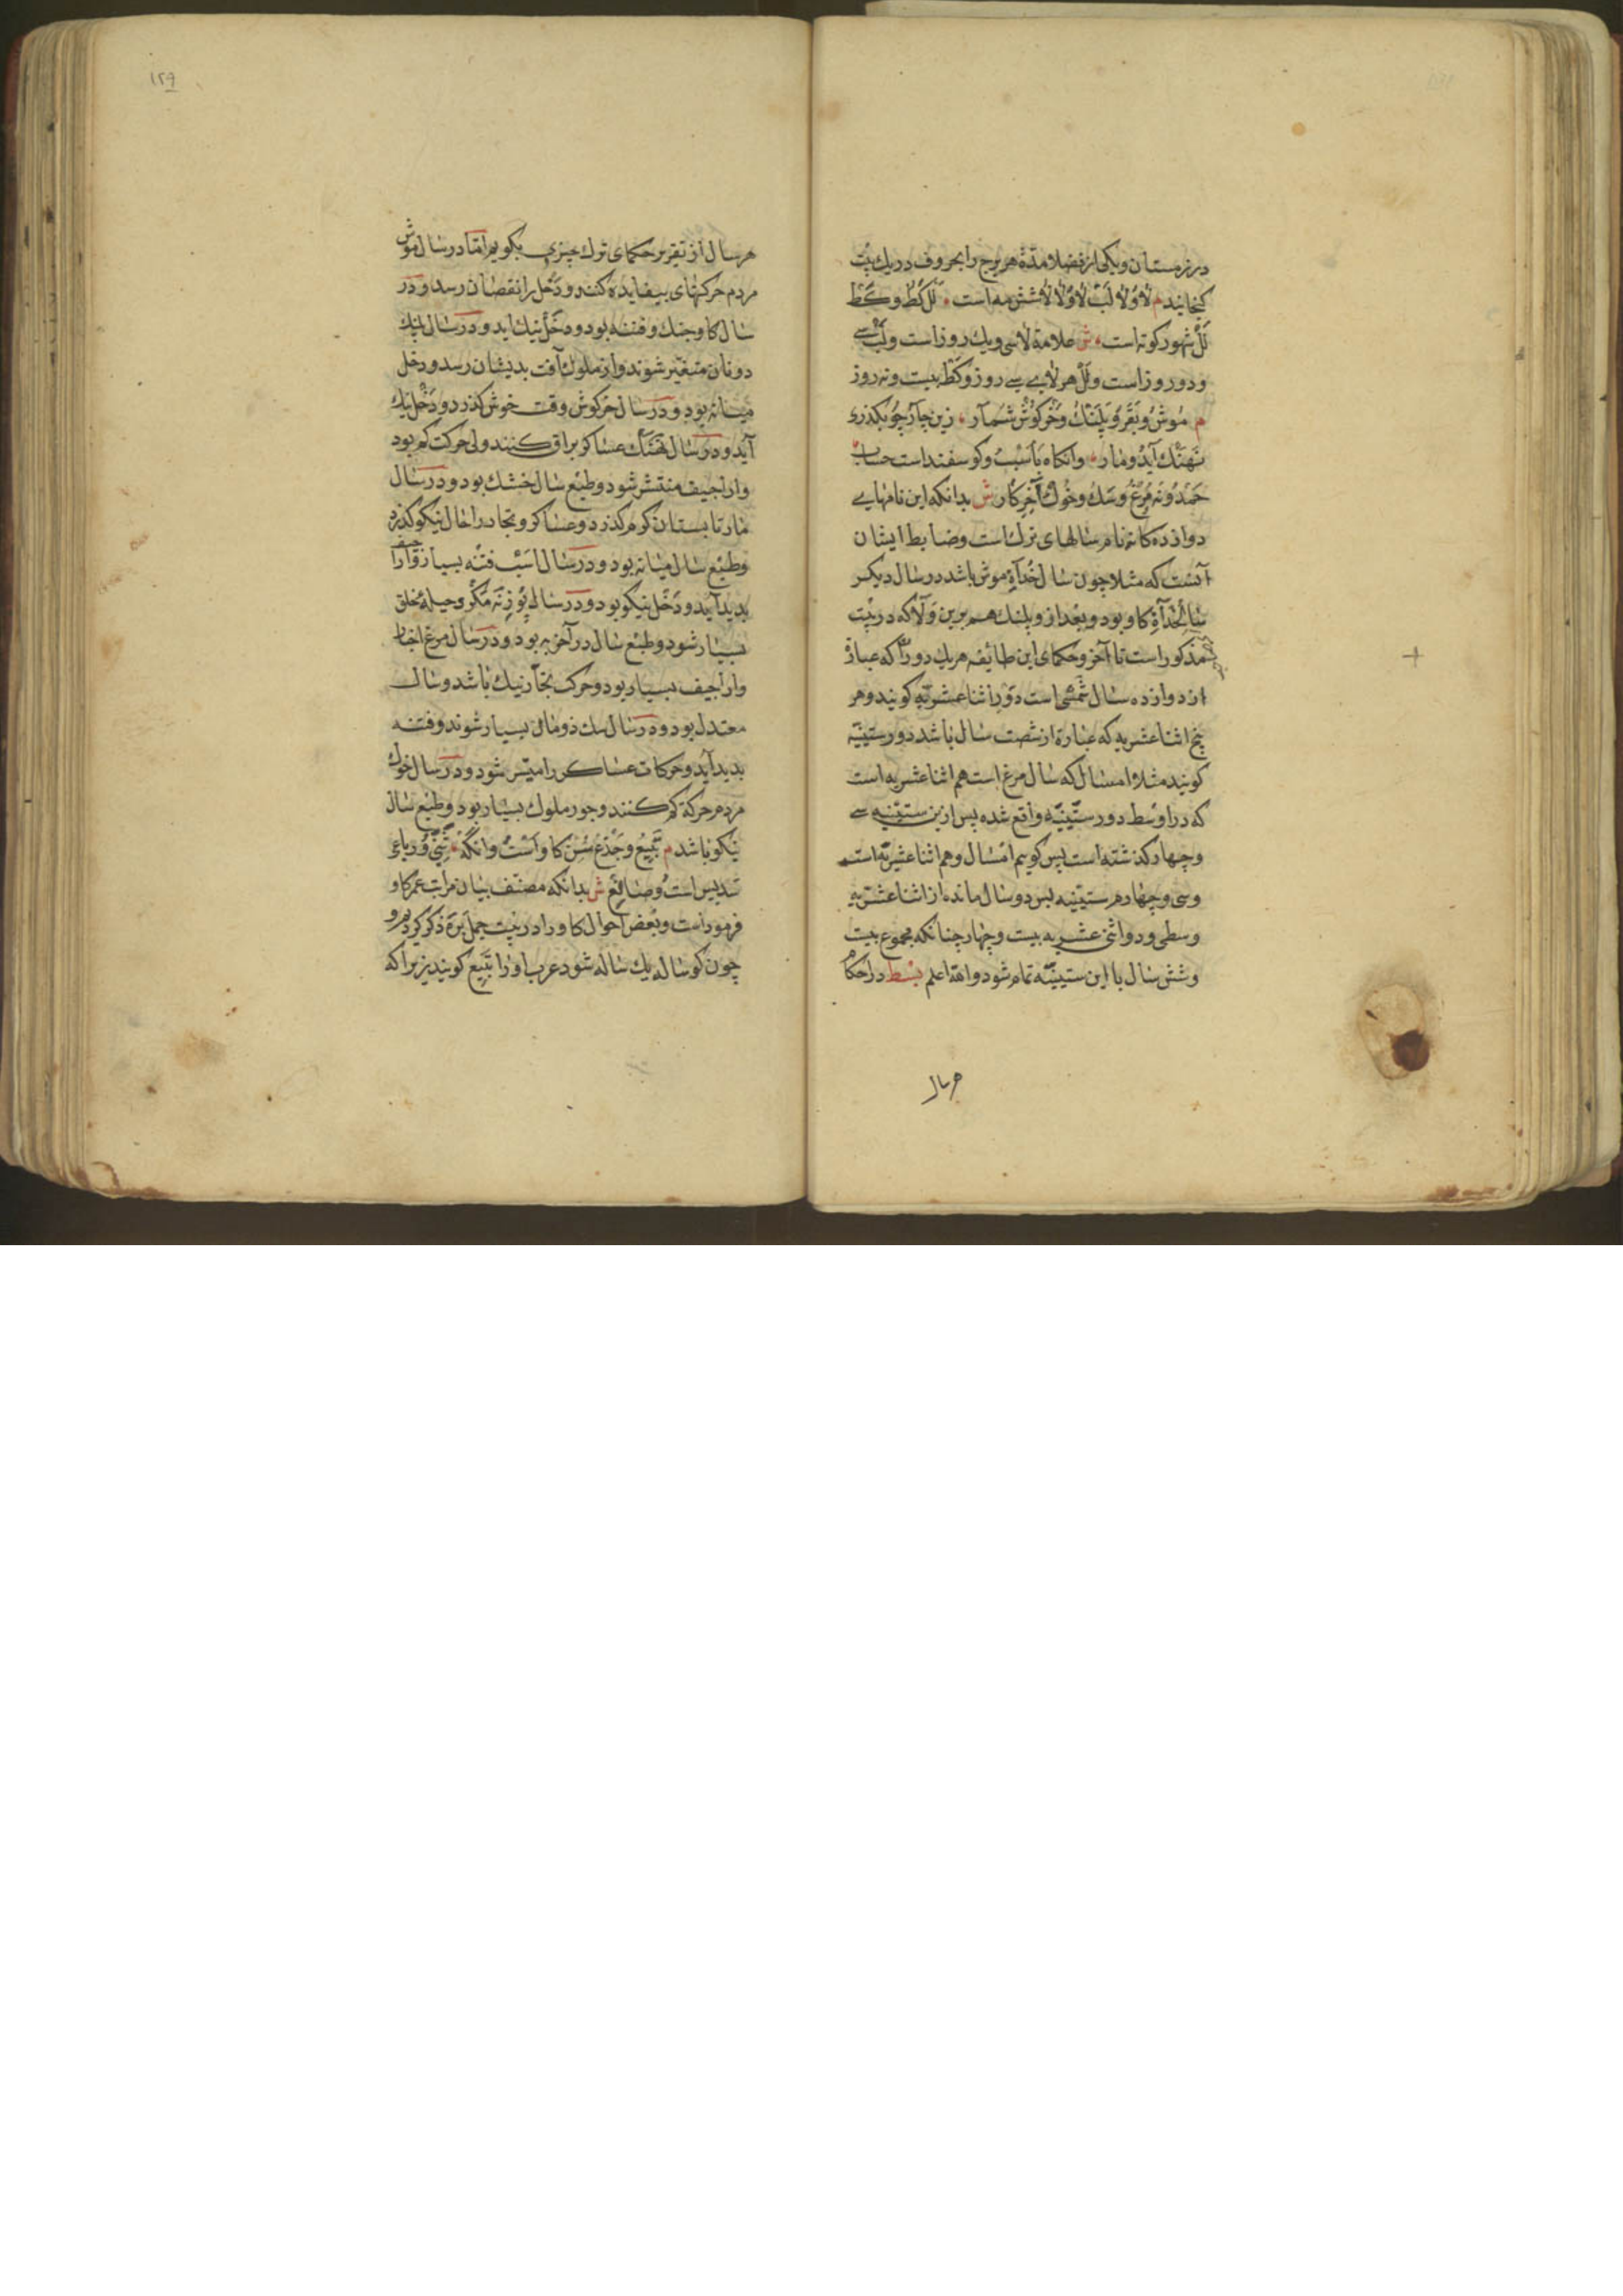 در زمستان و یکی از فضلا مدة هر برج را بحروف در یك بیت
کنجانیدم لا و لا لب لا و لا لا شش مه است لل کط و کط
لل شهور کوته است ش علامة لا سی و یك روز است و لب سی
و دو روز است و لل هر لامی سی روز و کط بیست و نه روز
م موش و بقر و پلنك و خرکوش شمار زین چار چو بکذری
نهنك آید و مار وانکاه باسب و کوسفند است حساب
حمدونه مرغ و سك و خوك آخر کار ش بدانکه این نامهایی
دوازده کانه نام سالهای ترك است و ضابط ایشان
آنست که مثلا چون سال خدآة موش باشد در سال دیکر
خدآة کاو بود و بعد از و پلنك هم برین ولا که در بیت
مذکور است تا آخر و حکمای این طایفه هر یك دور را که عبارة
از دوازده سال شمسی است دور اثنا عشریه کویند و هر
پنج اثنا عشریه که عبارة از شصت سال باشد دور ستینیه
کویند مثلا امسال که سال مرغ است هم اثنا عشریه است
که در اوسط دور ستینیه واقع شده پس ازین ستینیه سی
و چهار کذشته است پس کویم امسال و هم اثنا عشریه است
و سی و چهارم ستینیه پس دو سال مانده از اثنا عشریه
وسطی و دو اثنی عشریه بیست و چهار چنانکه مجموع بیست
و شش سال با این ستینیه تمام شود والله اعلم بسط در احکام
هر سال
۱۲۹
هر سال از تقریر حکمای ترك چیزی بکویم اما در سال موش
مردم حرکتهای بیفایده کنند و دخل را نقصان رسد و در
سال کاو جنك و فتنه بود و دخل نیك اید و در سال پلنك
دونان متغیر شوند و از ملوك آفت بدیشان رسد و دخل
میانه بود و در سال خرکوش وقت خوش کذرد و دخل نیك
آید و در سال نهنك عساکر براق کنند ولی حرکت کم بود
و اراجیف منتشر شود و طبع سال خشك بود و در سال
مار تابستان کرم کذرد و عساکر و تجار را حال نیکو کذرد
و طبع سال میانه بود و در سال اسب فتنه بسیار و اراجیف
پدید آید و دخل نیکو بود و در سال بوزنه مکر و حیله خلق
بسیار شود و طبع سال در آخر به بود و در سال مرغ اخبار
و اراجیف بسیار بود و حرکت تجار نیك باشد و سال
معتدل بود و در سال سك بسیار شوند و فتنه
پدید آید و حرکات عساکر را میسر شود و در سال خوك
مردم حرکة کم کنند و جور ملوك بسیار بود و طبع سال
نیکو باشد م تبیع و جذع سن کاو است وانکه ثنی و رباعی
سدیس است و صالغ ش بدانکه مصنف بیان مراتب عمر کاو
فرموده است و بعض احوال کاو را در بیت حمل بره ذکر کردم و
چون کوساله یك ساله شود عرب او را تبیع کویند زیرا که